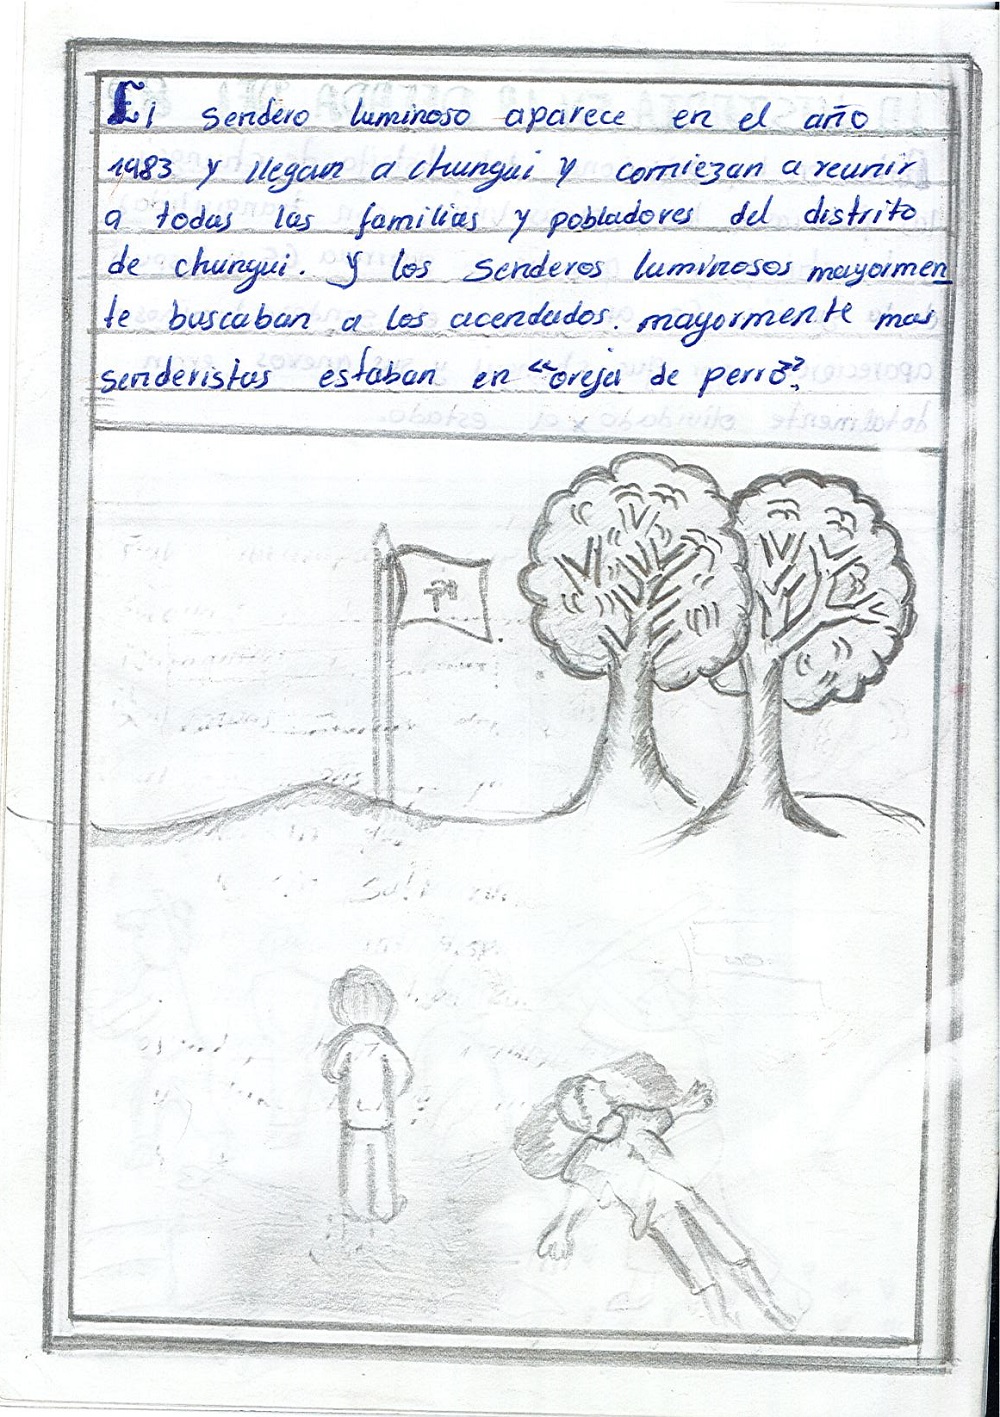 El Sendero luminoso aparece en el año
1983 y llegan a chungui y comiezan a reunir
a todas las familias y pobladores del distrito
de chungui. y los Senderos luminosos mayormen
te buscaban a los acendados. mayormente mas
senderistas estaban en "oreja de perro".